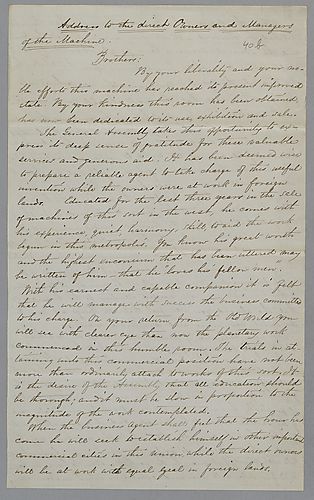 Address to the direct Owners and Managers
of the Machine.
40½
Brothers.
By your liberality and your no-
ble efforts this machine has reached its present improved
state. By your kindness this room has been obtained,
has now been dedicated to its use, exhibition and sale.
The General Assembly takes this opportunity to ex-
press its deep sense of gratitude for these valuable
services and generous aid. It has been deemed wise
to prepare a reliable agent to take charge of this useful
invention while the owners were at work in foreign
lands. Educated for the last three years in the sale
of machines of this sort in the west, he comes with
his experience, quiet, harmony, skill, to aid the work
begun in this metropolis. You know his great worth
and the highest encomium that has been uttered may
be written of him - that he "loves his fellow men."
With his earnest and capable companion it is felt
that he will manage with success the business committed
to his charge. On your return from the Old World you
will see with clearer eye than now the planetary work
commenced in this humble room. The trials in at-
taining unto this commercial position have not been
more than ordinarily attach to works of this sort. It
is the desire of the Assembly that all education should
be thorough, and it must be slow in proportion to the
magnitude of the work contemplated.
When the business agent shall feel that the hour has
come he will seek to establish himself in other important
commercial cities in this union while the direct owners
will be at work with equal zeal in foreign lands.